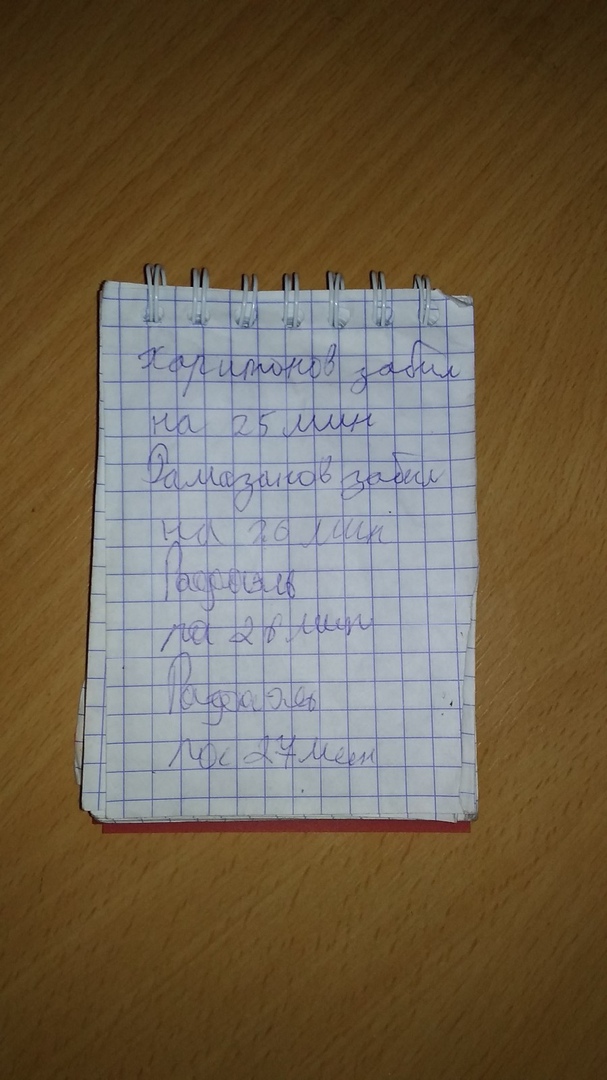 Харитонов забил
на 25 мин
Рамазанов забил
на 26 мин
Рафаэль
на 26 мин
Рафаэль
на 27 мин